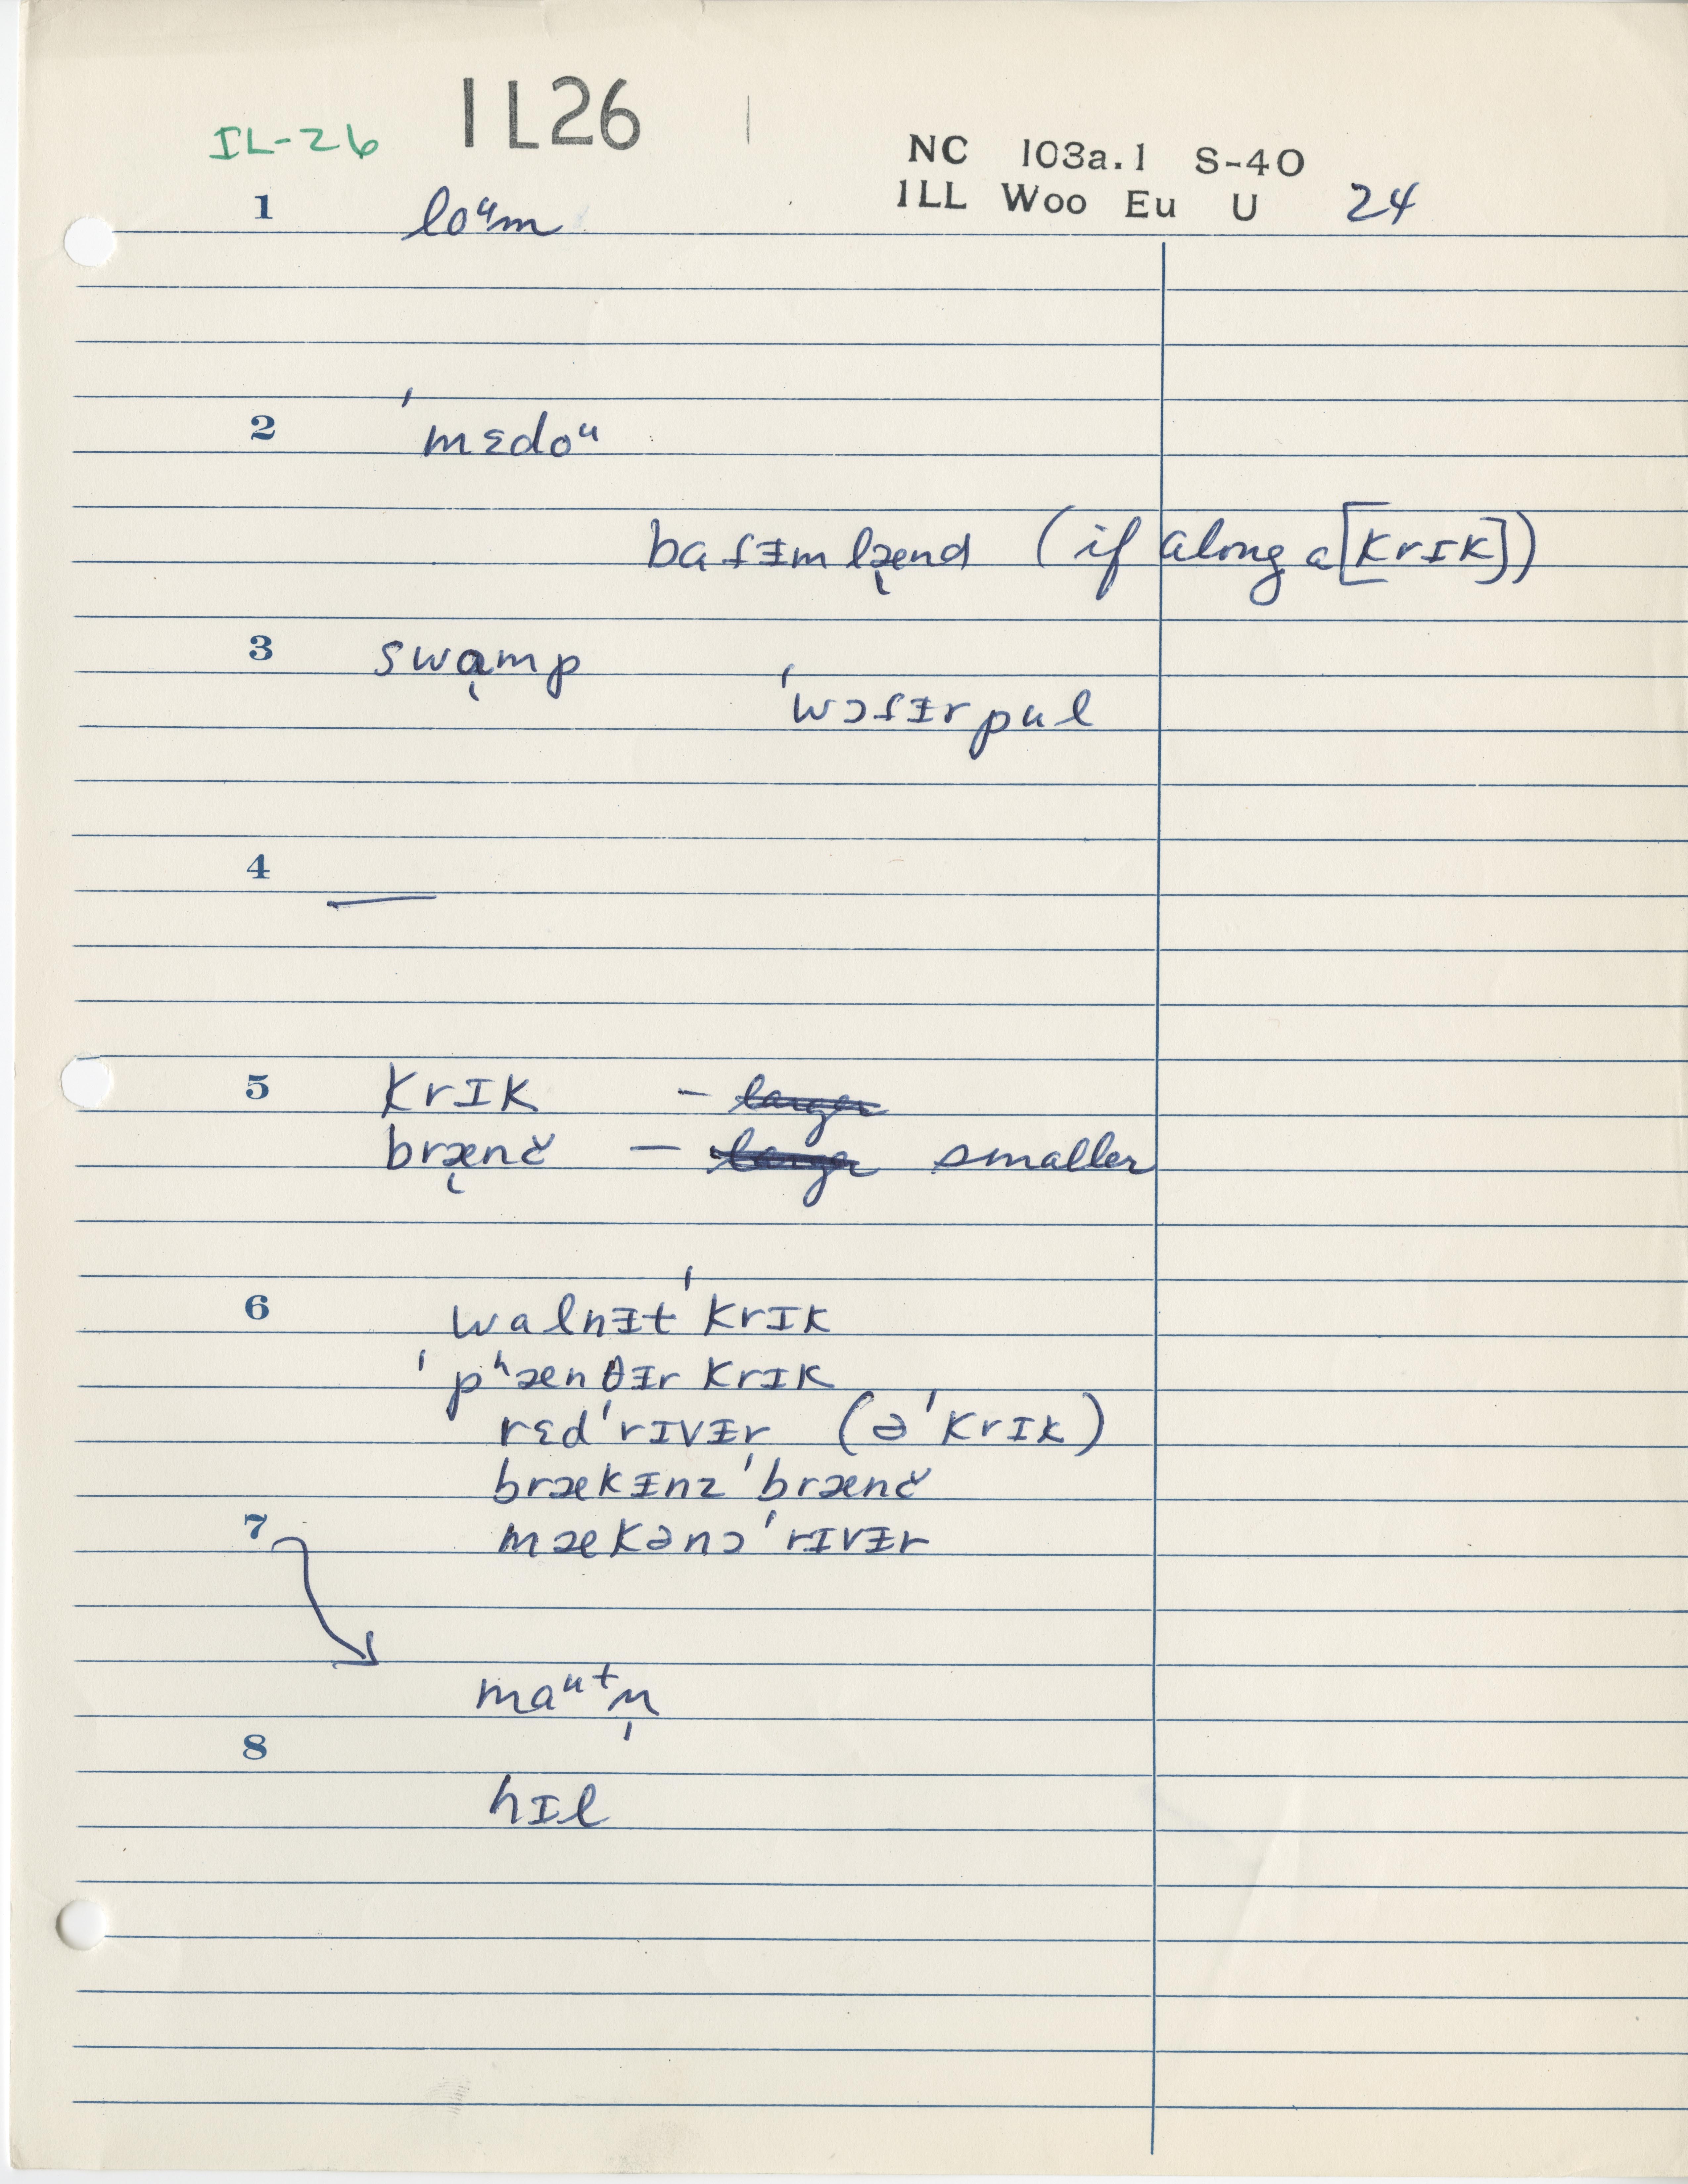 IL-26 IL26
NC 103a.1 S-40
ILL Woo Eu U 24
1 loᵘm
2 ˈmɛdoᵘ
baɾᵻmlæ̨nd (if along a [krɪk])
3 swɑ̨mp
ˈwɔɾᵻrpul
4 —
5 krɪk – ~~larger~~
bræ̨nč – ~~larger~~ smaller
6 walnᵻtˈkrɪk
ˈpʰænθᵻrkrɪk
rɛdˈrɪvᵻr (əˈkrɪk)
brækᵻnzˈbrænč
7 mækənɔˈrɪvᵻr
maᵘtn̩
8
hɪl